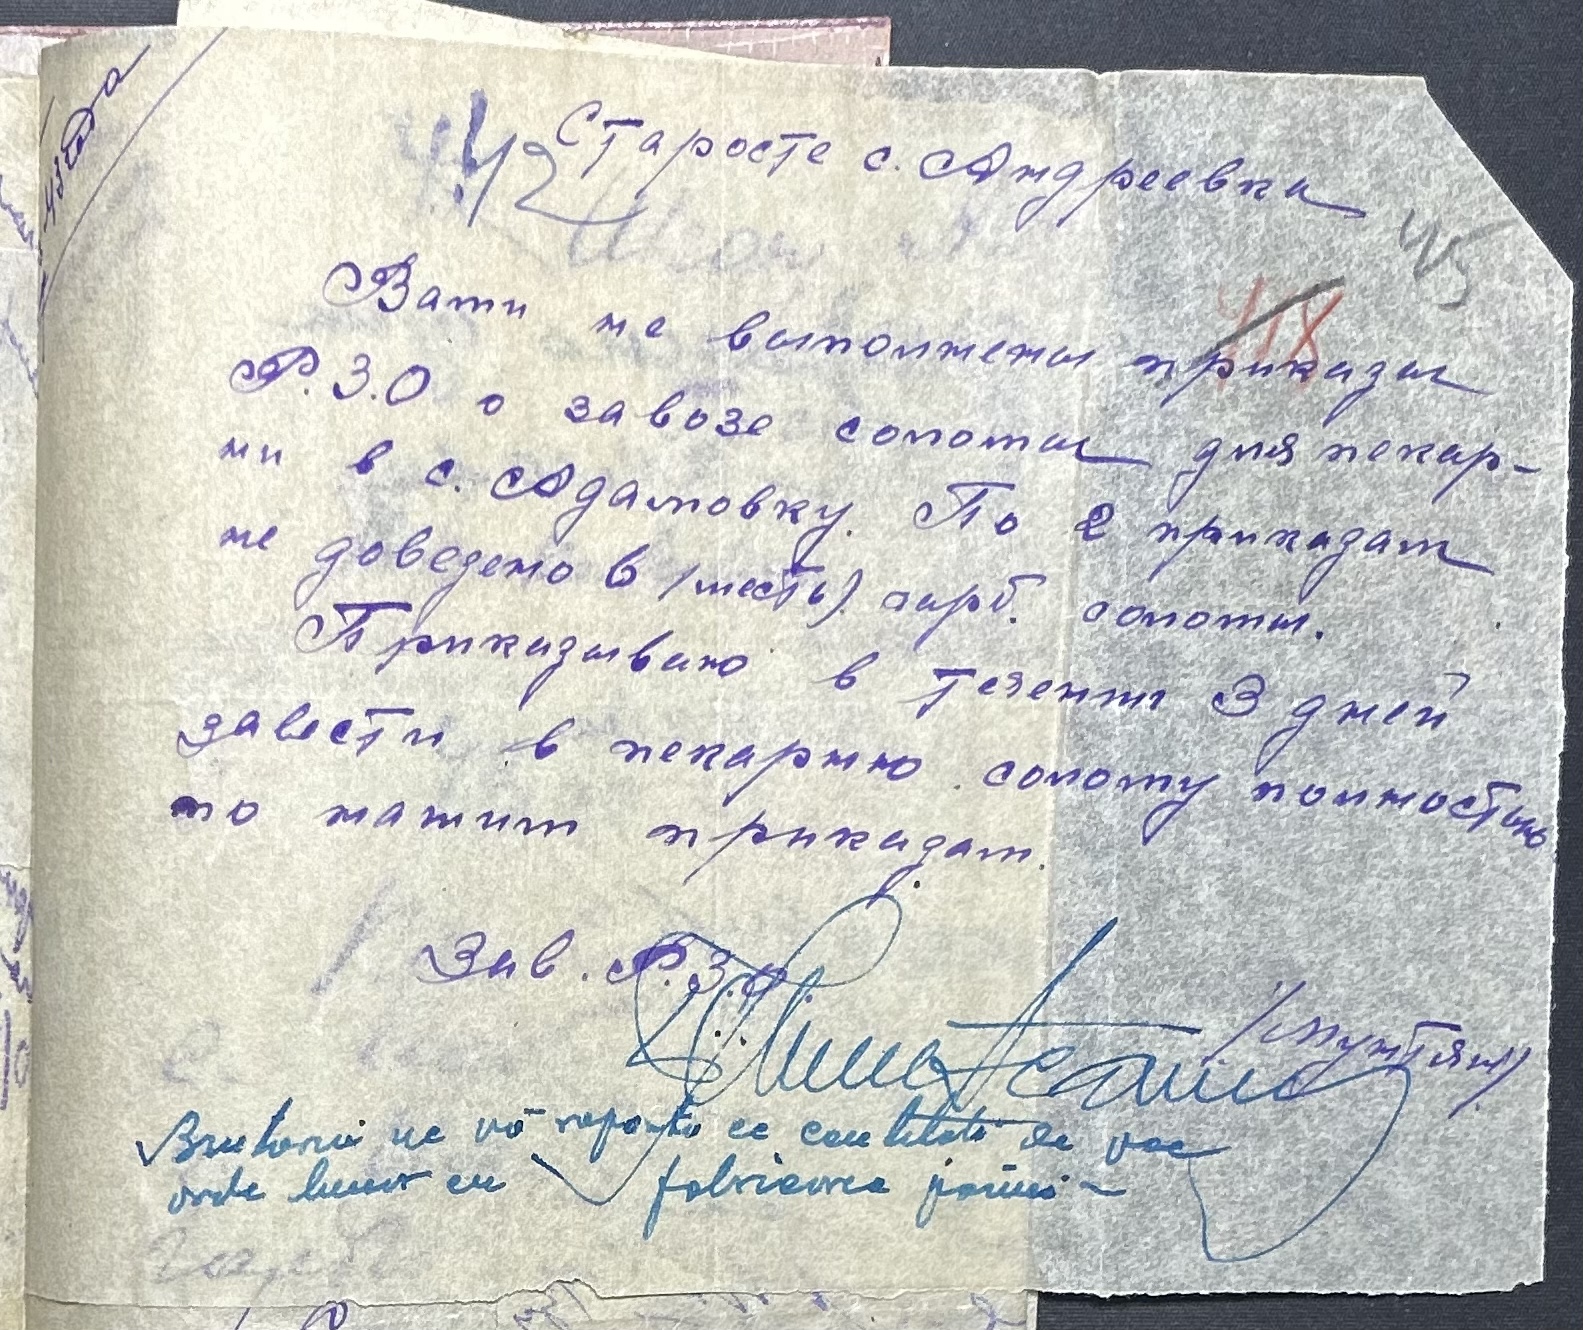 43 года
42
Старосте с. Андреевки
45
418
Вами не выполнены приказы
Р.З.О о завозе соломы для пекар-
ни в с. Адамовку. По 2 приказам
не доведено 6 (шесть). гарб. соломы.
Приказываю в течении 3 дней
завести в пекарню солому полностью
по нашим приказам.
Зав. Р.З.О.
Brutaria ne va raporta ce cantitate de
fabricarea pâinii